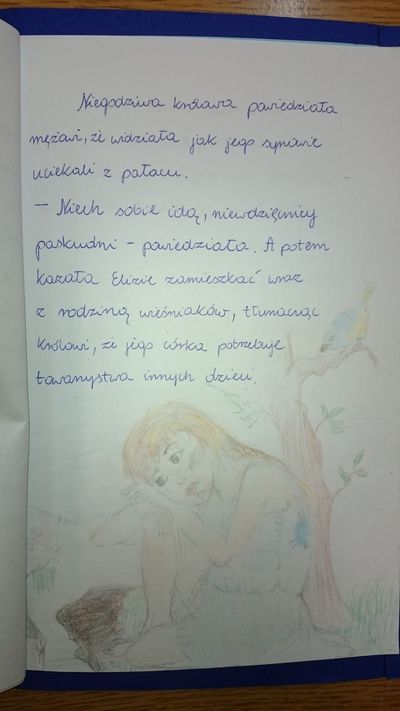 Niegodziwa królowa powiedziała
mężowi, że widziała jak jego synowie
uciekali z pałacu.
– Niech sobie idą, niewdzięcznicy
paskudni – powiedziała. A potem
kazała Elizie zamieszkać wraz
z rodziną wieśniaków, tłumacząc
królowi, że jego córka potrzebuje
towarzystwa innych dzieci.